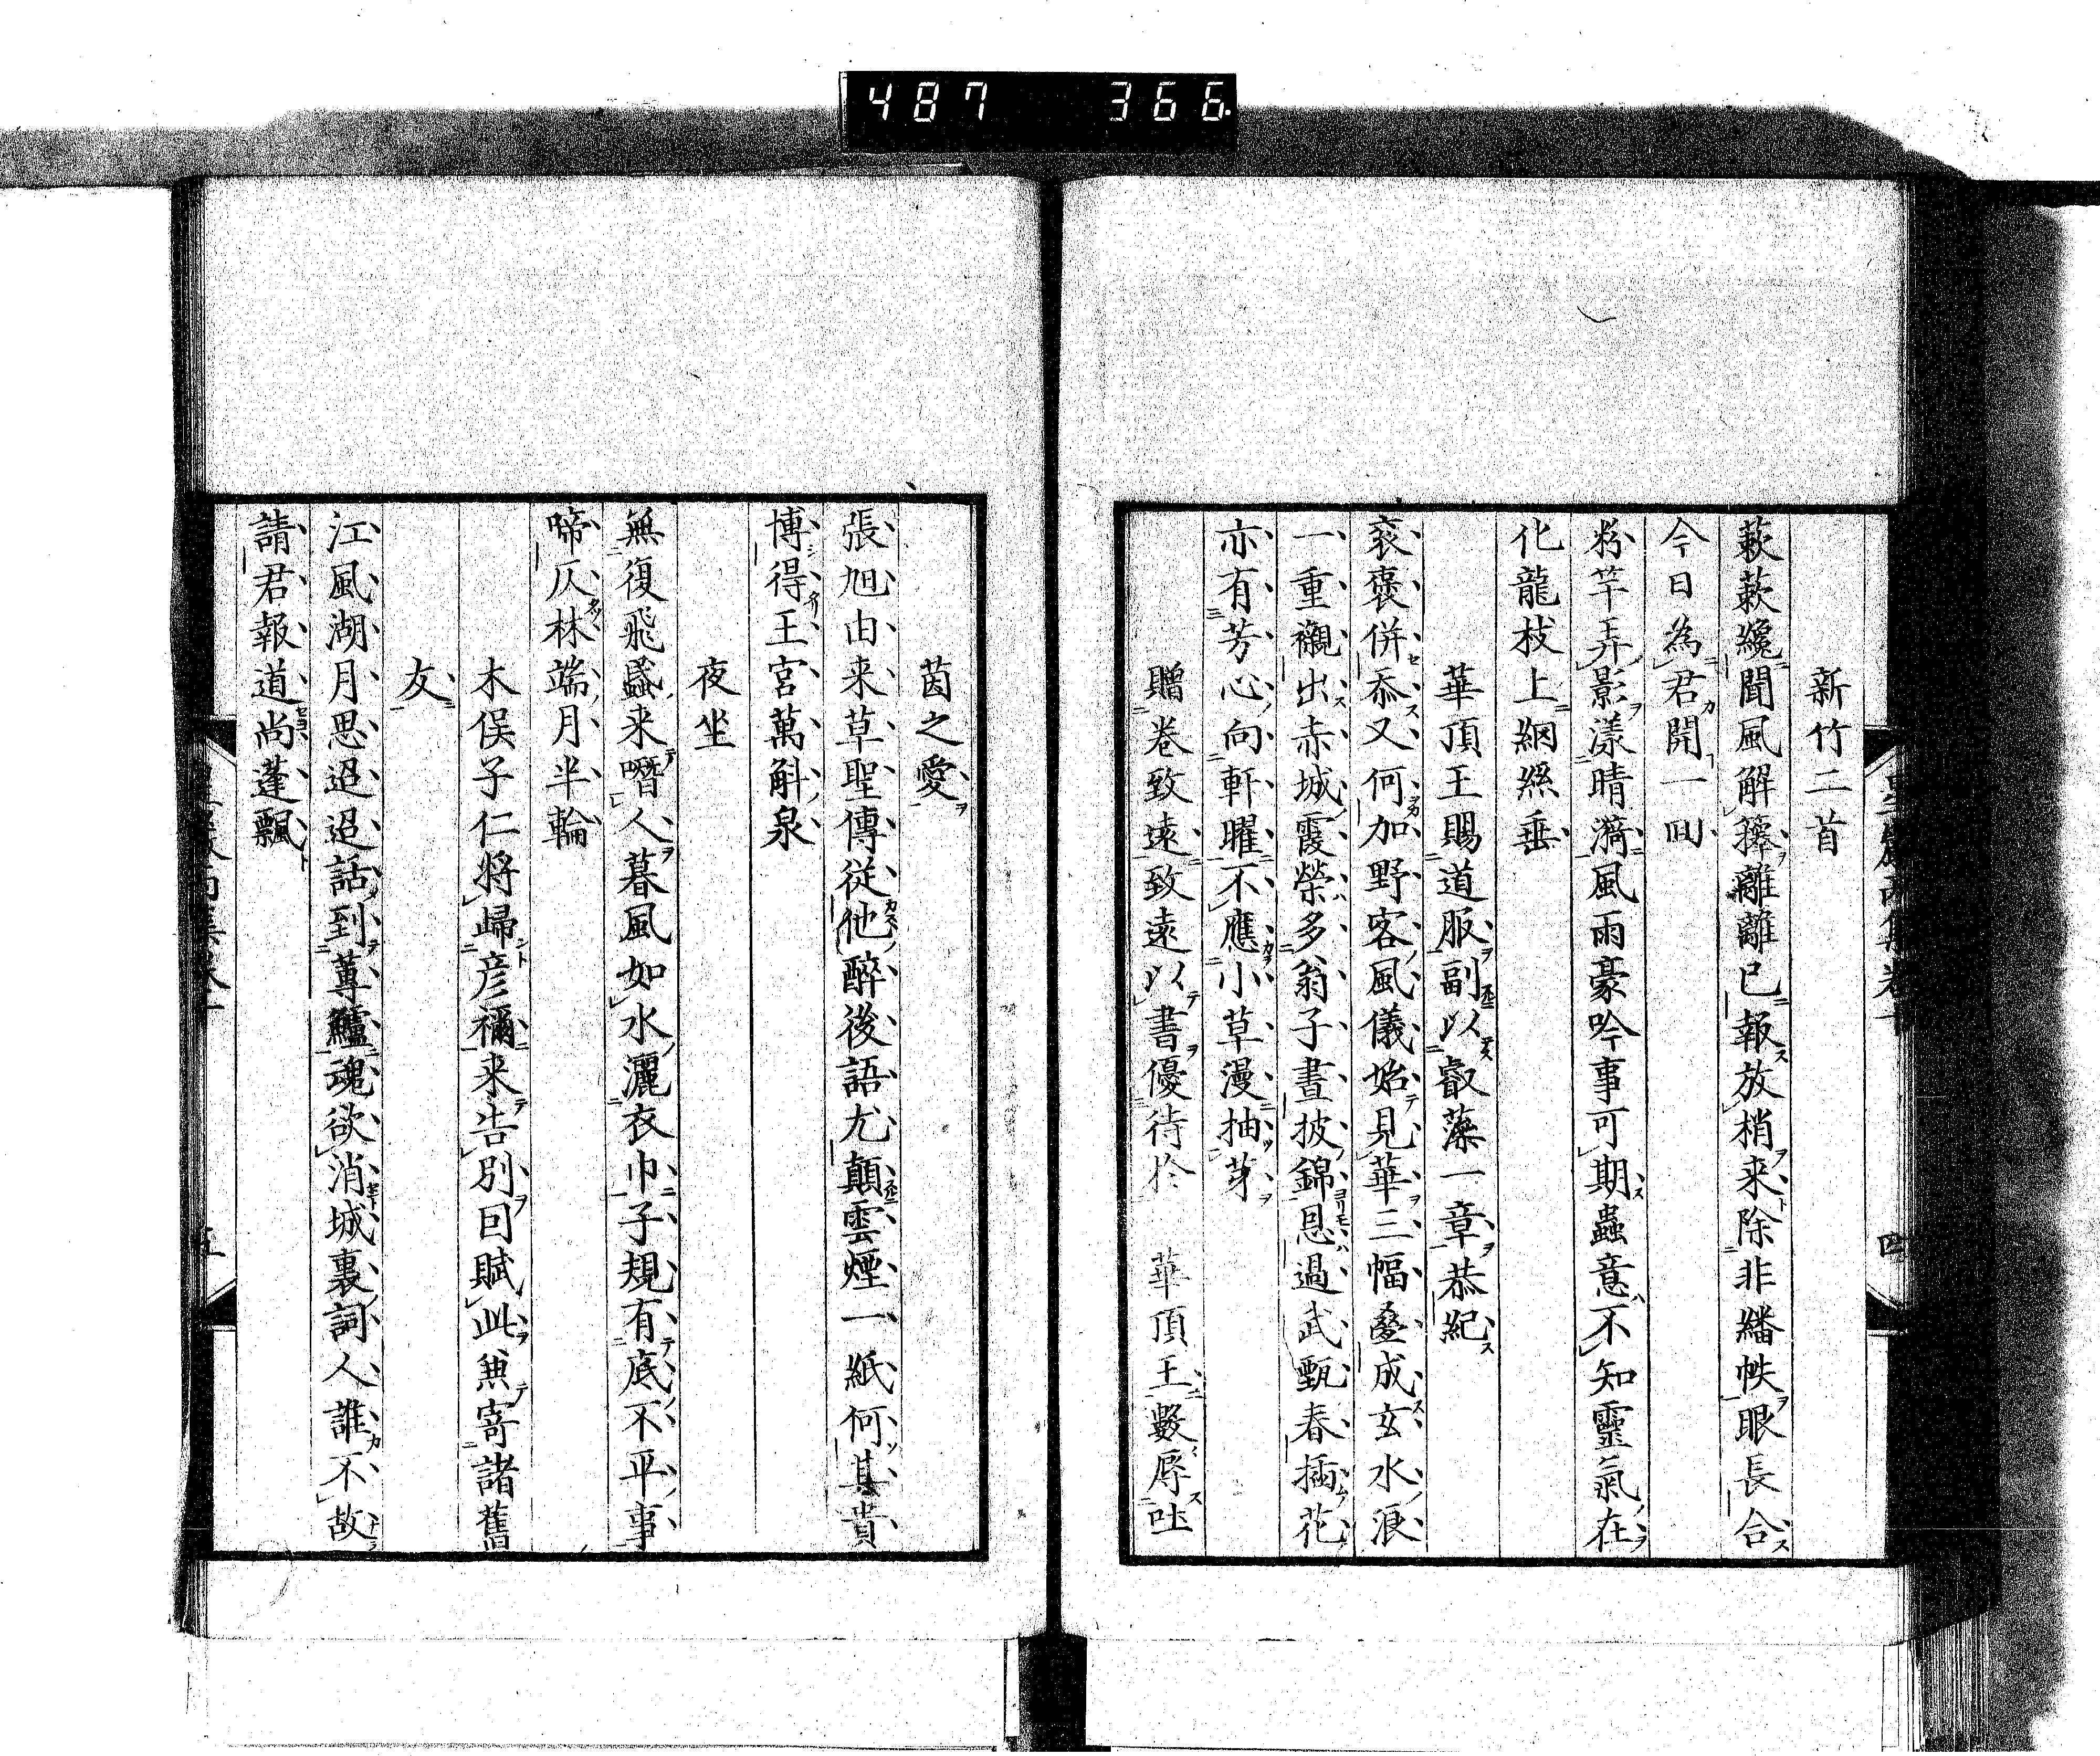 487 366
新竹二首
蔌蔌纔聞風解籜離離已報放梢来除非繙帙眼長合
今日為君開一回
粉竿弄影漾晴漪風雨豪吟事可期蟲意不知靈氣在
化龍枝上網絲垂
華頂王賜道服副以叡藻一章恭紀
衮褒併忝又何加野客風儀始見華三幅疊成玄水浪
一重襯出赤城霞榮多翁子晝披錦恩過武甄春插花
亦有芳心向軒曜不應小草漫抽芽
贈卷致遠致遠以書優待於 華頂王數辱吐
茵之愛
張旭由来草聖傳従他醉後語尤顛雲煙一紙何其貴
博得王宮萬斛泉
夜坐
無復飛蟁来噆人暮風如水灑衣巾子規有底不平事
啼仄林端月半輪
木俣子仁将歸彦禰来告別因賦此兼寄諸舊
友
江風湖月思迢迢話到蓴鱸魂欲消城裏詞人誰不故
請君報道尚蓬飄